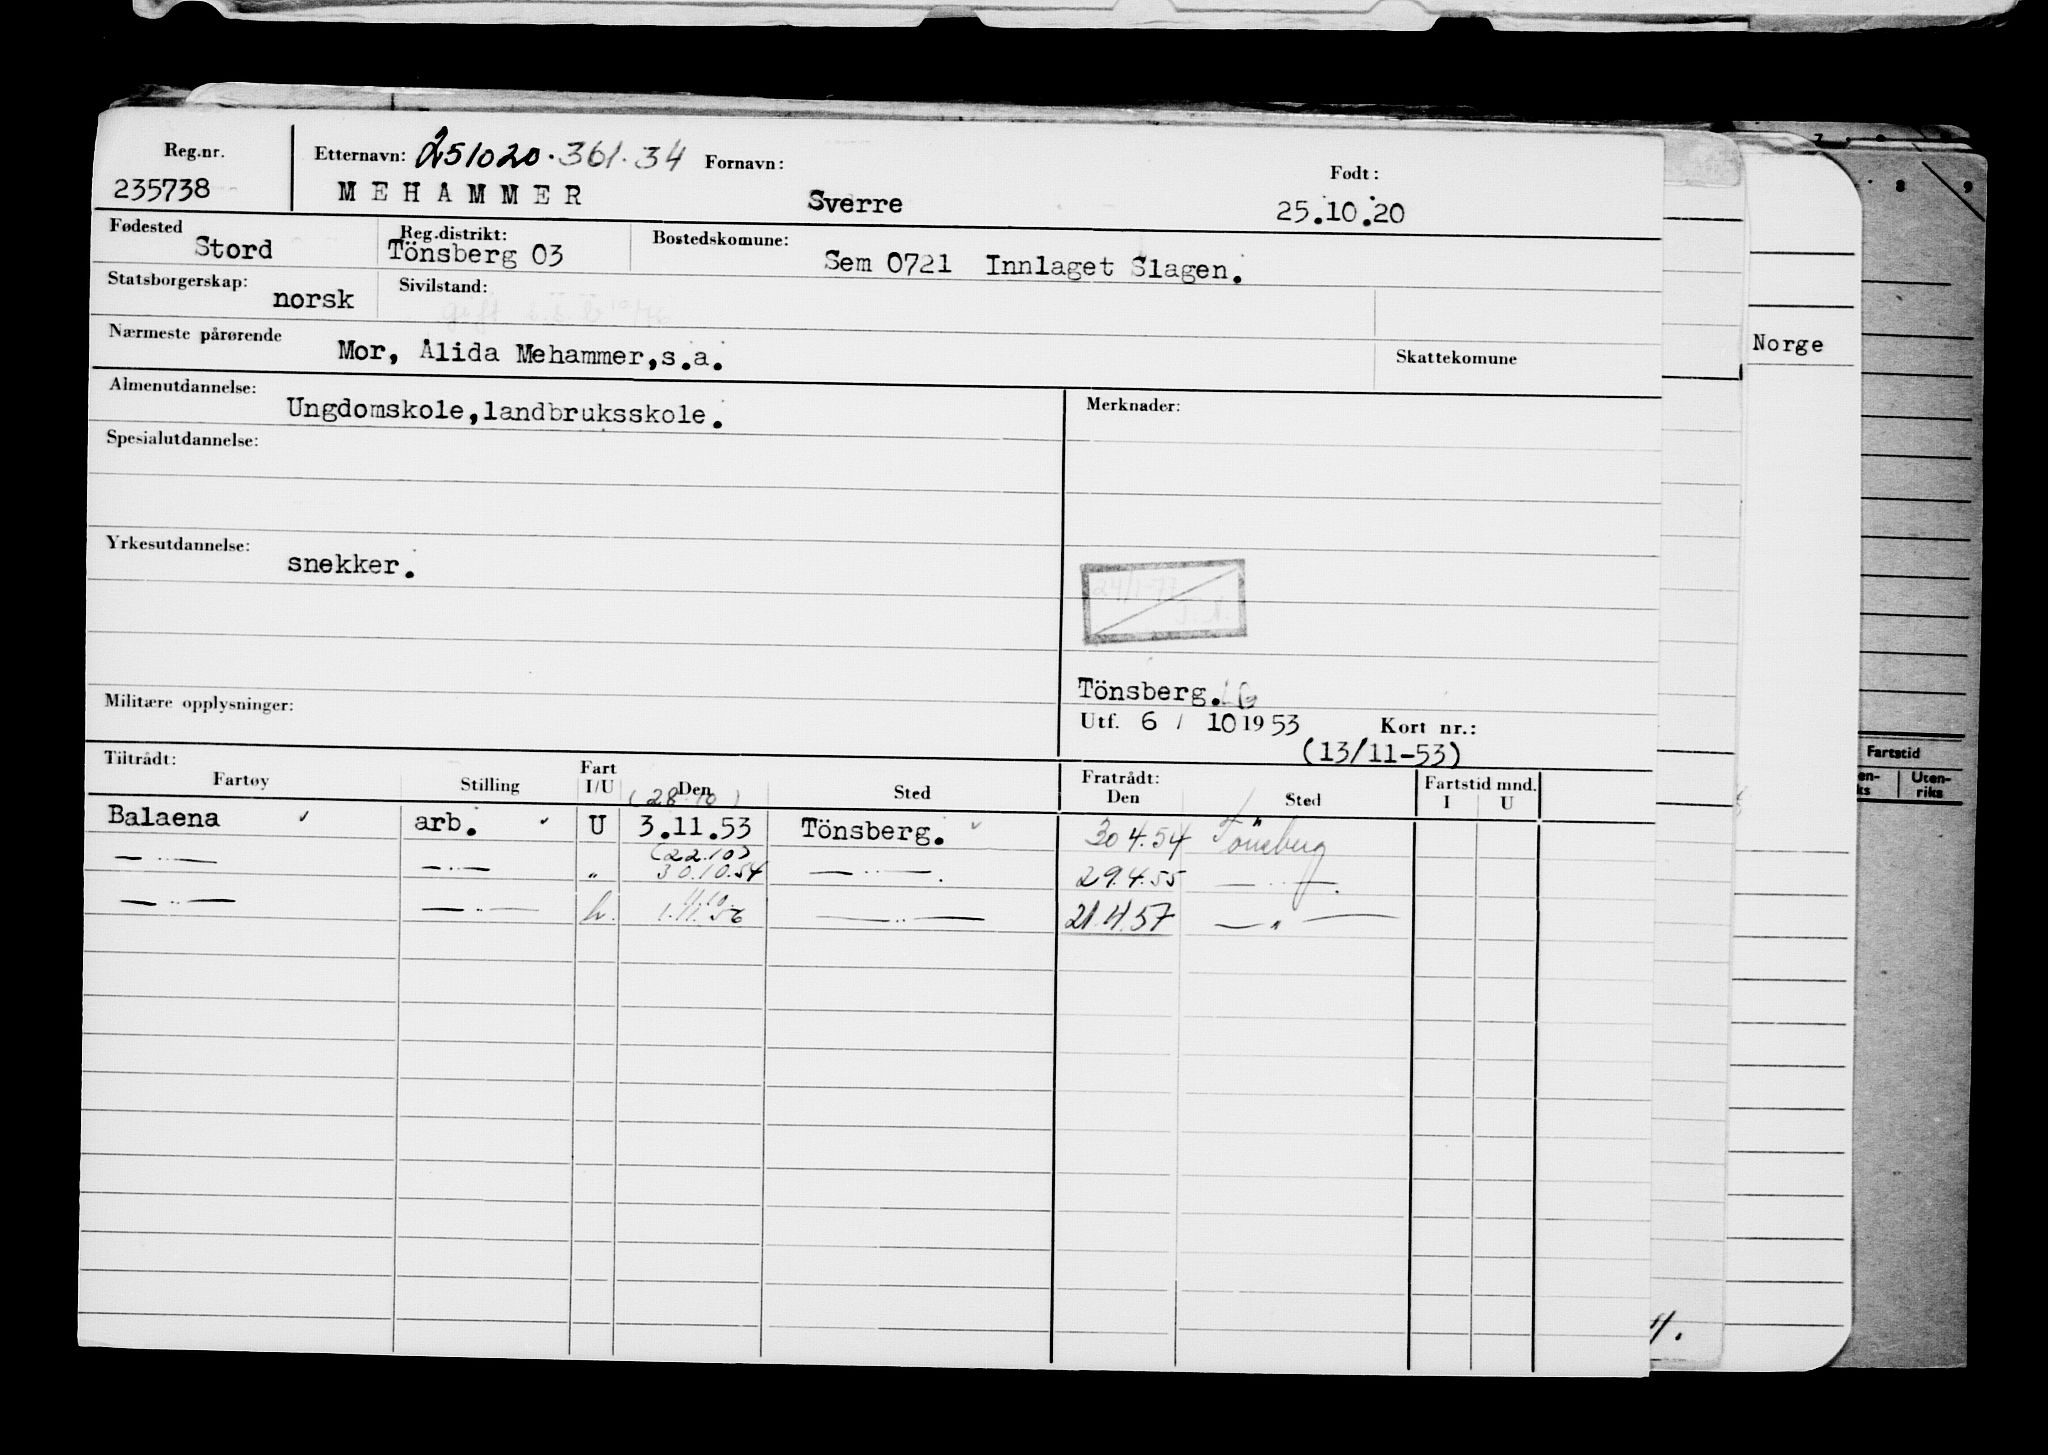 Reg.nr. Etternavn: 251020.361.34 Fornavn: Født:
235738 MEHAMMER Sverre 25.10.20
Fødested Reg.distrikt: Bostedskomune:
Stord Tönsberg 03 Sem 0721 Innlaget Slagen.
Statsborgerskap: Sivilstand:
norsk gift
Nærmeste pårørende Skattekomune
Mor, Alida Mehammer,s.a.
Almenutdannelse: Merknader:
Ungdomskole,landbruksskole.
Spesialutdannelse:
Yrkesutdannelse:
snekker.
Tönsberg.
Militære opplysninger: Utf. 6 / 10 19 53 Kort nr.:
(13/11-53)
Tiltrådt: Fratrådt: Fartstid mnd.
Fartøy Stilling Fart I/U Den Sted Den Sted I U
(28.10)
Balaena ✓ arb. ✓ U 3.11.53 Tönsberg. ✓ 30 4.54 Tönsberg
(22.10)
— ·· — — ·· — " 30.10.54 — ·· —. 29.4.55 — ·· —.
— ·· — — ·· — 1.11.56 — ·· — 21.4.57 — " —
Norge
7 8 9
8 9
Fartstid
en-
ks
Uten-
riks